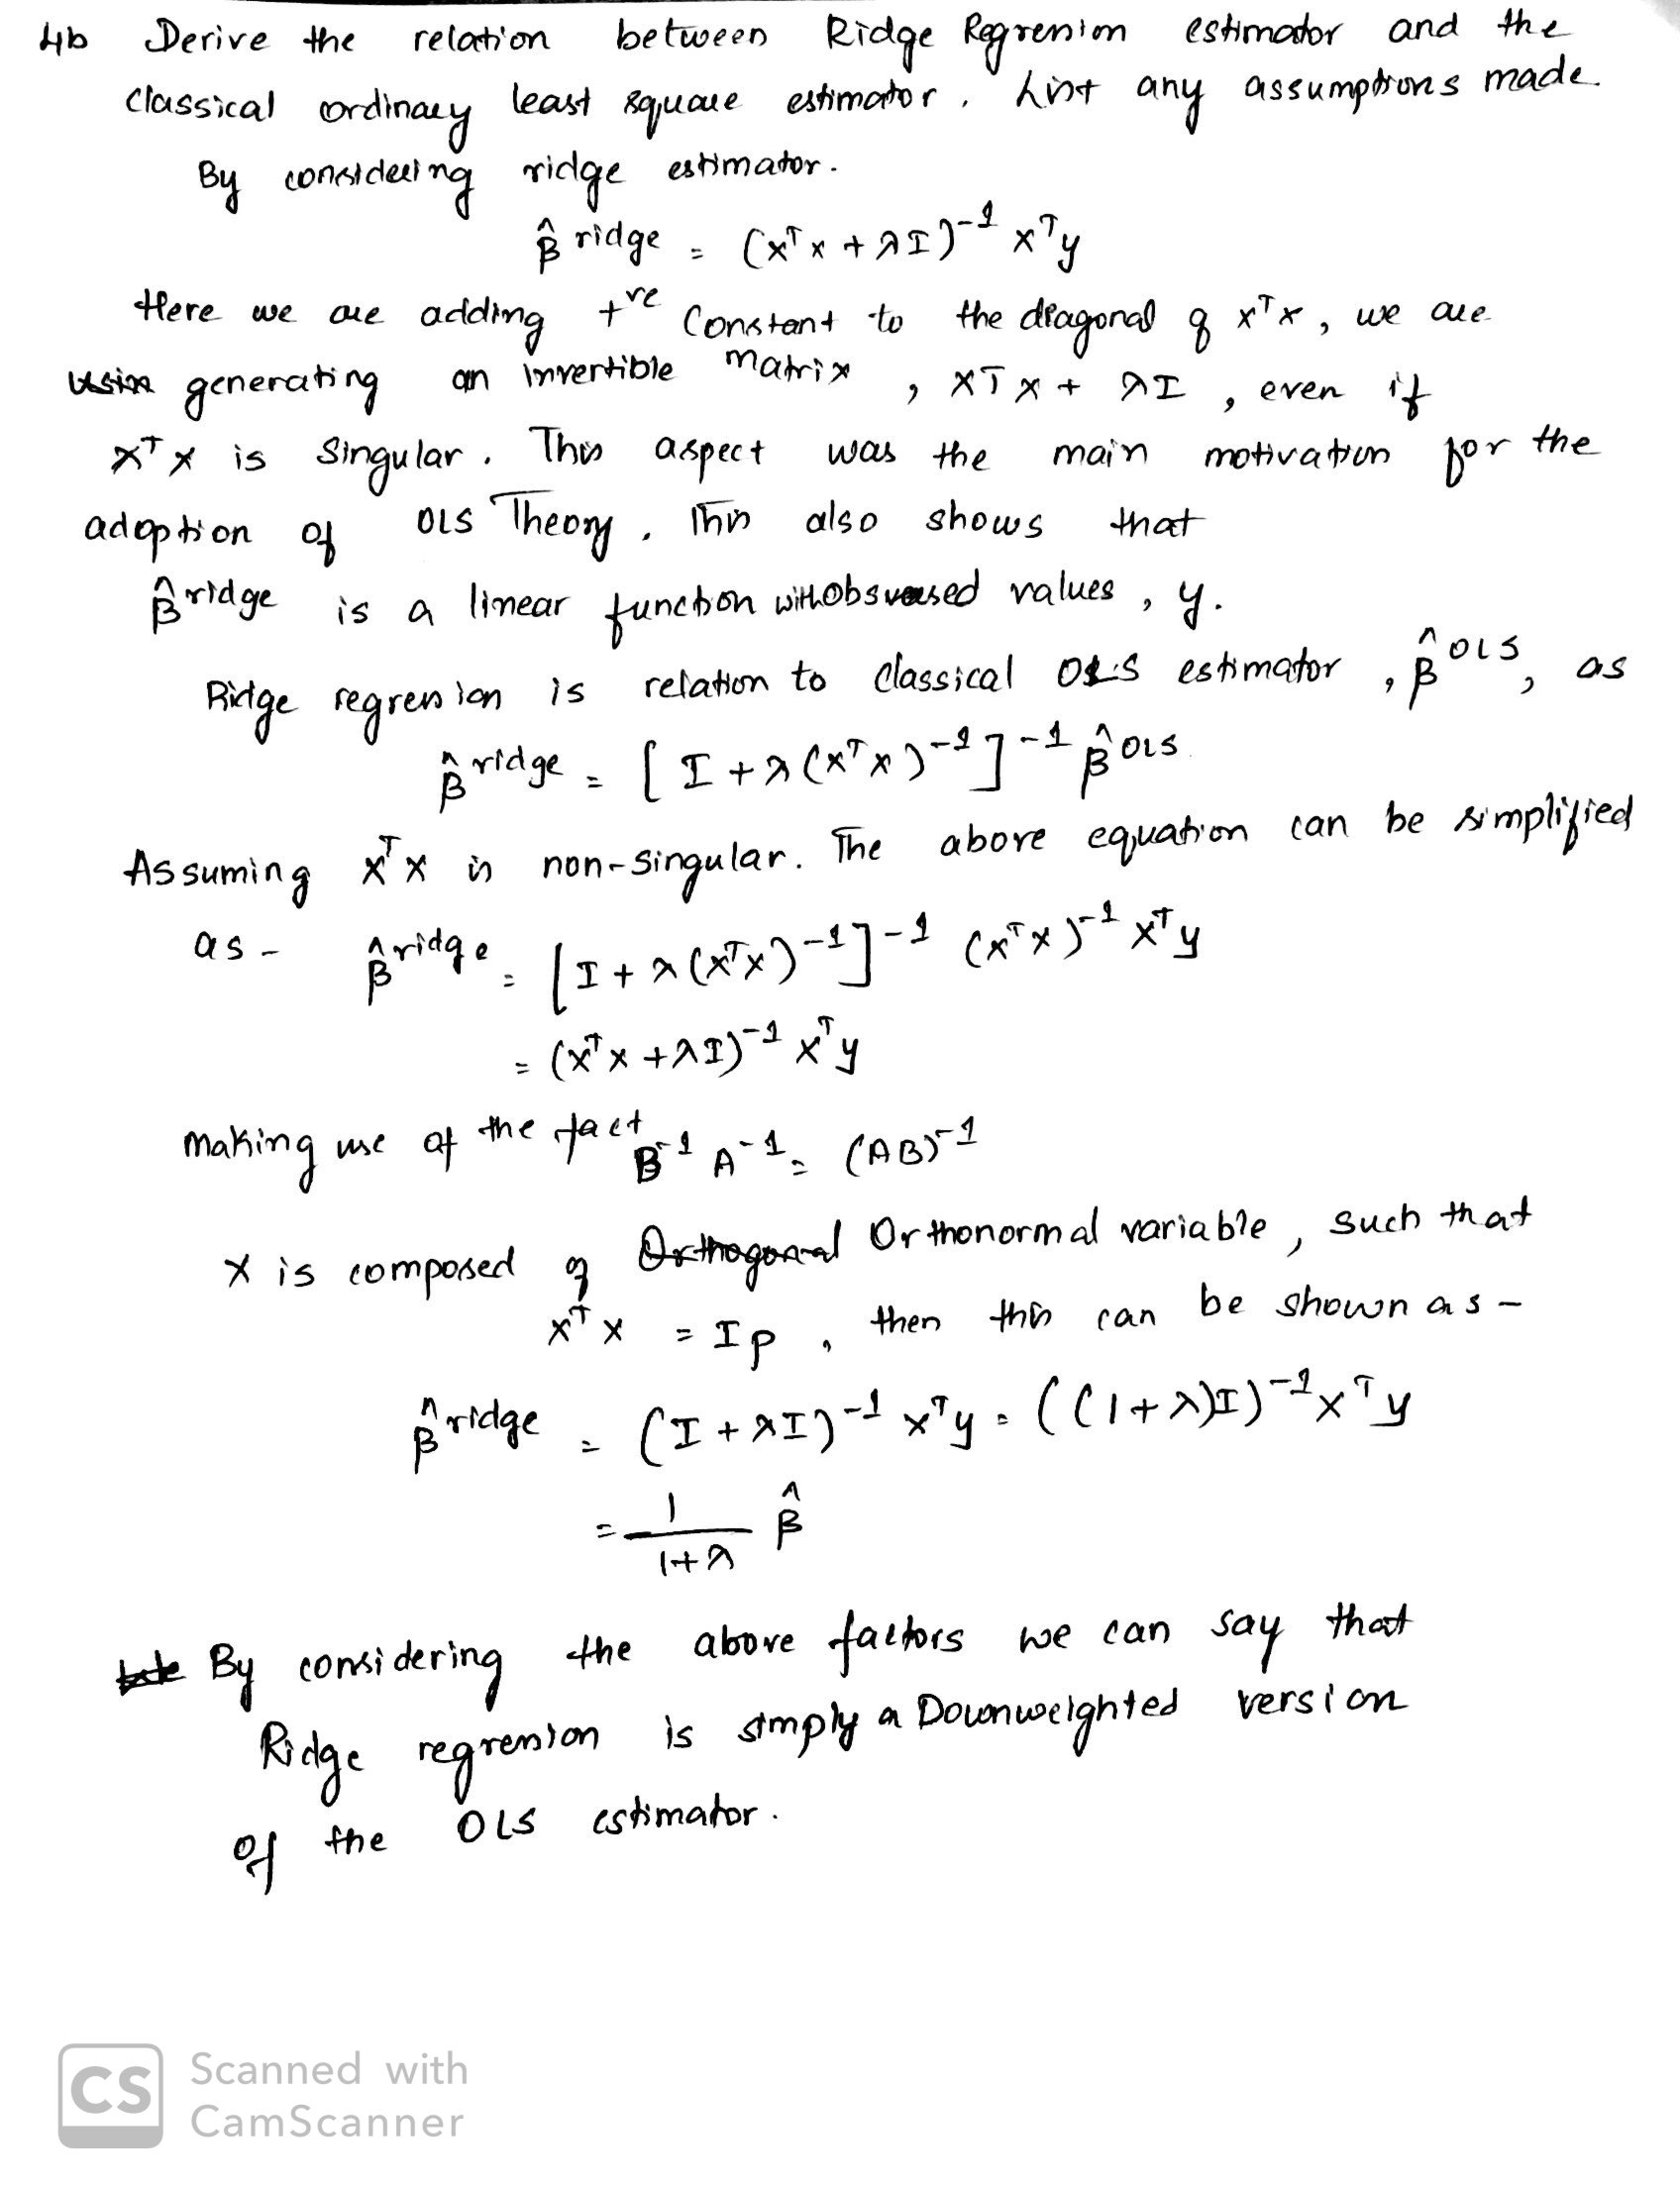 4b Derive the relation between Ridge Regression estimator and the
classical ordinary least square estimator. List any assumptions made.
By considering ridge estimator.
β̂ ridge = (xᵀx + λI)⁻¹ xᵀy
Here we are adding +ve Constant to the diagonal of xᵀx, we are
generating an invertible matrix, xᵀx + λI, even if
xᵀx is singular. This aspect was the main motivation for the
adoption of OLS Theory. This also shows that
β̂ ridge is a linear function with observed values, y.
Ridge regression is relation to classical OLS estimator, β̂ OLS, as
β̂ ridge = [I + λ(xᵀx)⁻¹]⁻¹ β̂ OLS
Assuming xᵀx is non-singular. The above equation can be simplified
as - β̂ ridge = [I + λ(xᵀx)⁻¹]⁻¹ (xᵀx)⁻¹ xᵀy
= (xᵀx + λI)⁻¹ xᵀy
making use of the fact B⁻¹ A⁻¹ = (AB)⁻¹
x is composed of Orthogonal Orthonormal variable, such that
xᵀx = Ip, then this can be shown as -
β̂ ridge = (I + λI)⁻¹ xᵀy = ((1+λ)I)⁻¹ xᵀy
= 1/(1+λ) β̂
By considering the above factors we can say that
Ridge regression is simply a Downweighted version
of the OLS estimator.
CS Scanned with
CamScanner